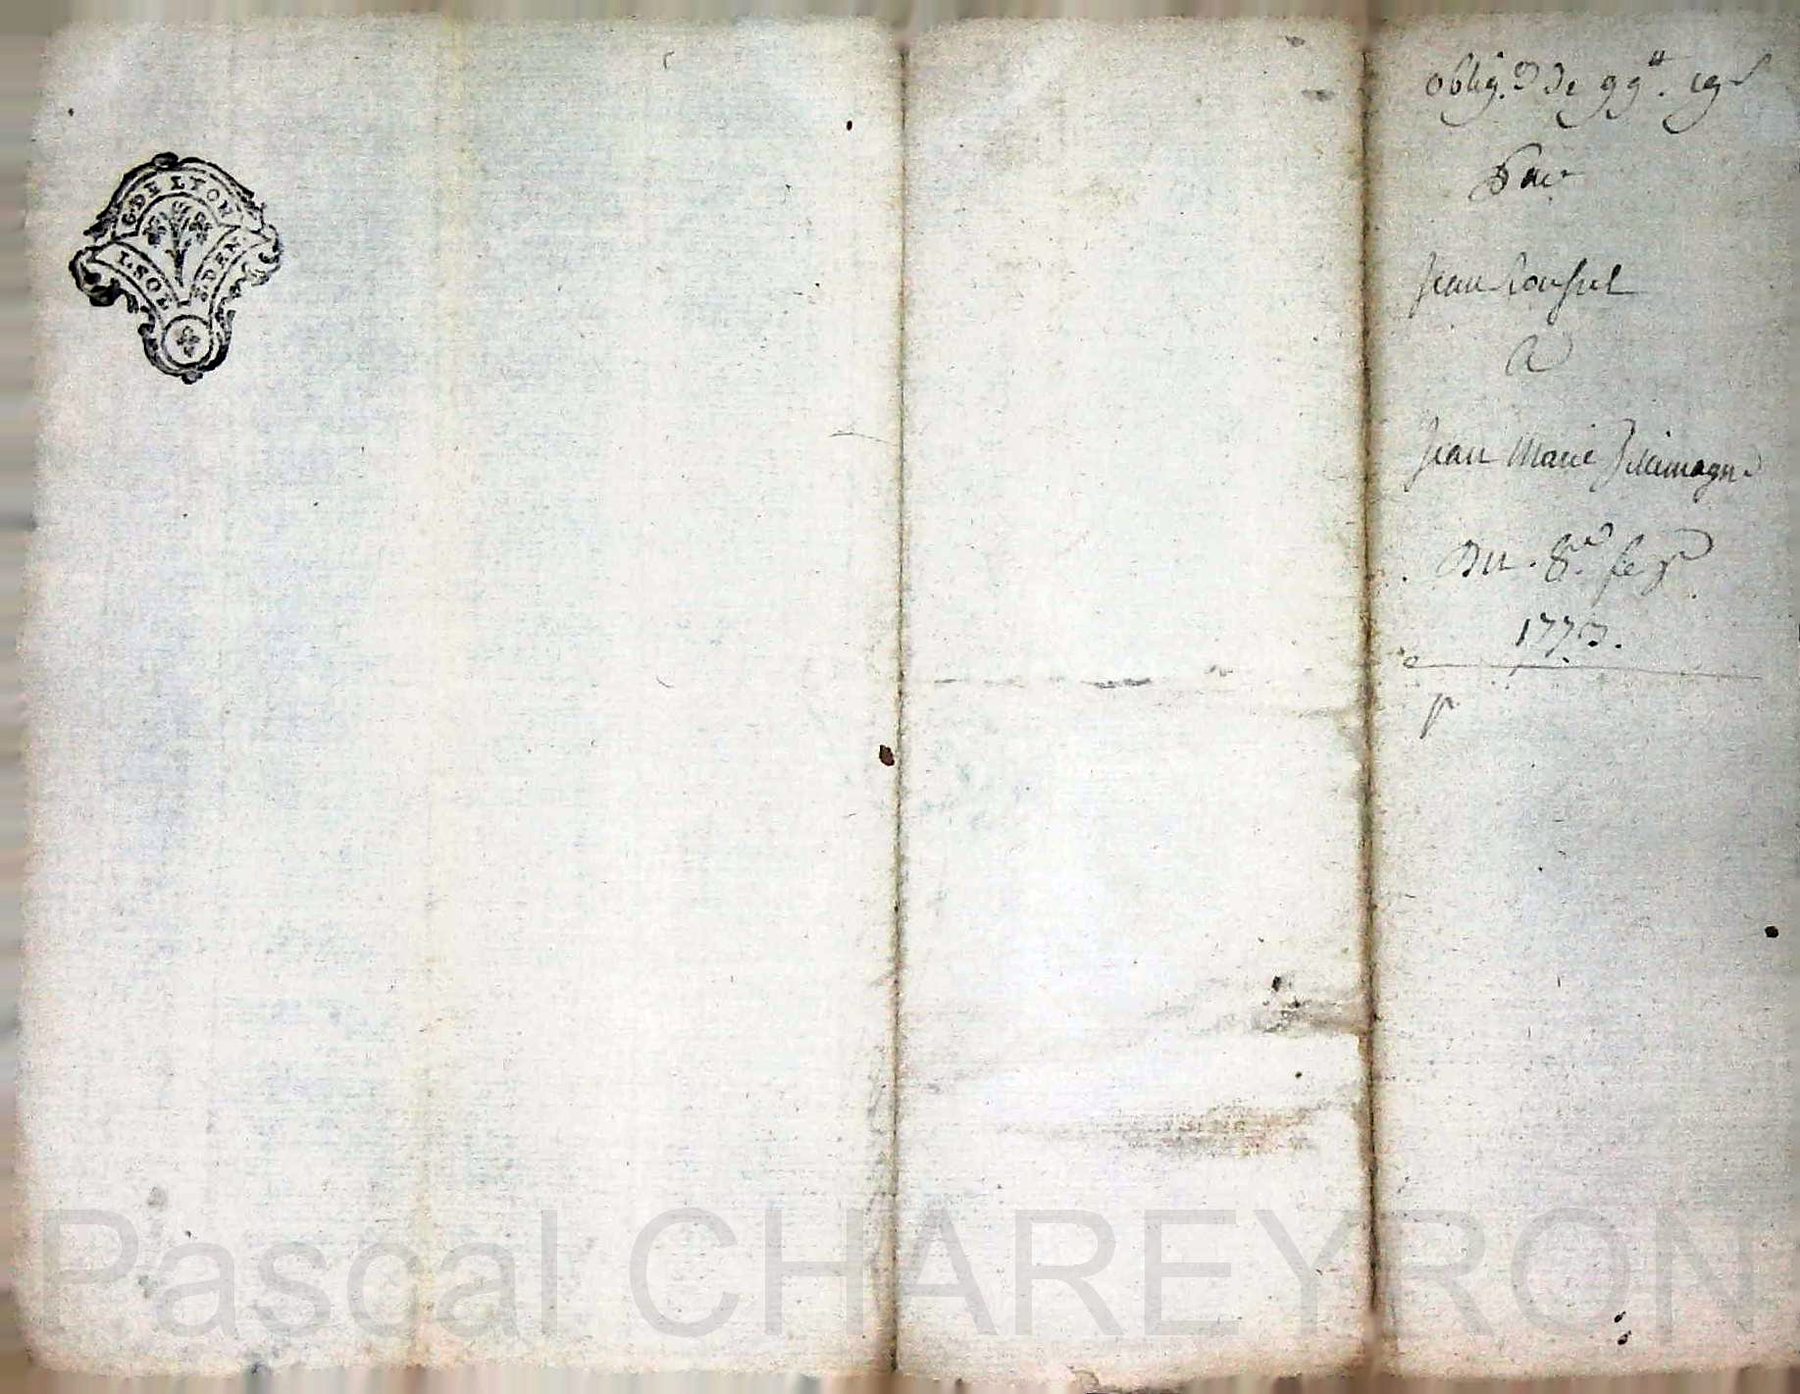 G. DE LYON
1. SOL
8. DEN.
oblig.on de 99# 19s
Par
Jean Rousset
A
Jean Marie
Du . 8.e fe.er
1773.
Pascal CHAREYRON